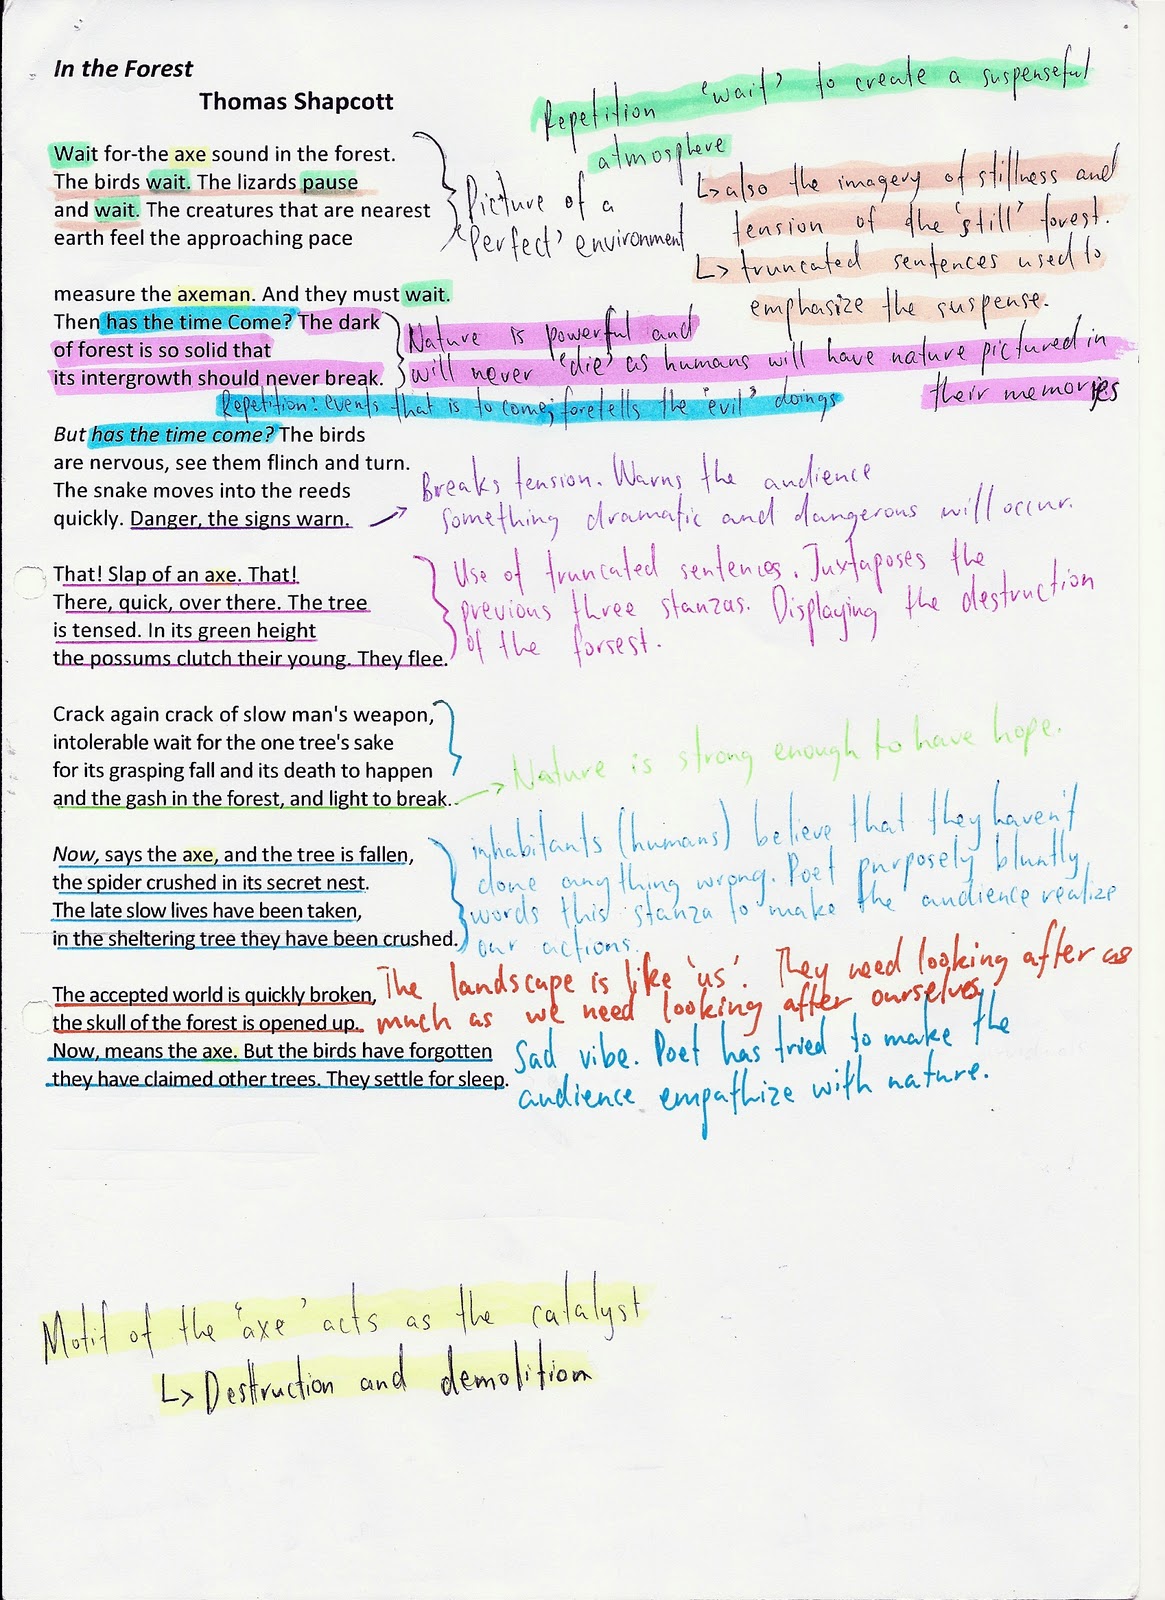 In the Forest
Thomas Shapcott
Repetition 'wait' to create a suspenseful
atmosphere
↳ also the imagery of stillness and
tension of the 'still' forest.
↳ truncated sentences used to
emphasize the suspense.
Wait for-the axe sound in the forest.
The birds wait. The lizards pause
and wait. The creatures that are nearest
earth feel the approaching pace
Picture of a
'Perfect' environment
measure the axeman. And they must wait.
Then has the time Come? The dark
of forest is so solid that
its intergrowth should never break.
Nature is powerful and
will never 'die' as humans will have nature pictured in
their memories
Repetition: events that is to come; foretells the 'evil' doings
But has the time come? The birds
are nervous, see them flinch and turn.
The snake moves into the reeds
quickly. Danger, the signs warn.
Breaks tension. Warns the audience
something dramatic and dangerous will occur.
That! Slap of an axe. That!
There, quick, over there. The tree
is tensed. In its green height
the possums clutch their young. They flee.
Use of truncated sentences. Juxtaposes the
previous three stanzas. Displaying the destruction
of the forsest.
Crack again crack of slow man's weapon,
intolerable wait for the one tree's sake
for its grasping fall and its death to happen
and the gash in the forest, and light to break.
Nature is strong enough to have hope.
Now, says the axe, and the tree is fallen,
the spider crushed in its secret nest.
The late slow lives have been taken,
in the sheltering tree they have been crushed.
inhabitants (humans) believe that they haven't
done anything wrong. Poet purposely bluntly
words this stanza to make the audience realize
our actions.
The accepted world is quickly broken,
the skull of the forest is opened up.
Now, means the axe. But the birds have forgotten
they have claimed other trees. They settle for sleep.
The landscape is like 'us'. They need looking after as
much as we need looking after ourselves
Sad vibe. Poet has tried to make the
audience empathize with nature.
Motif of the 'axe' acts as the catalyst
↳ Destruction and demolition